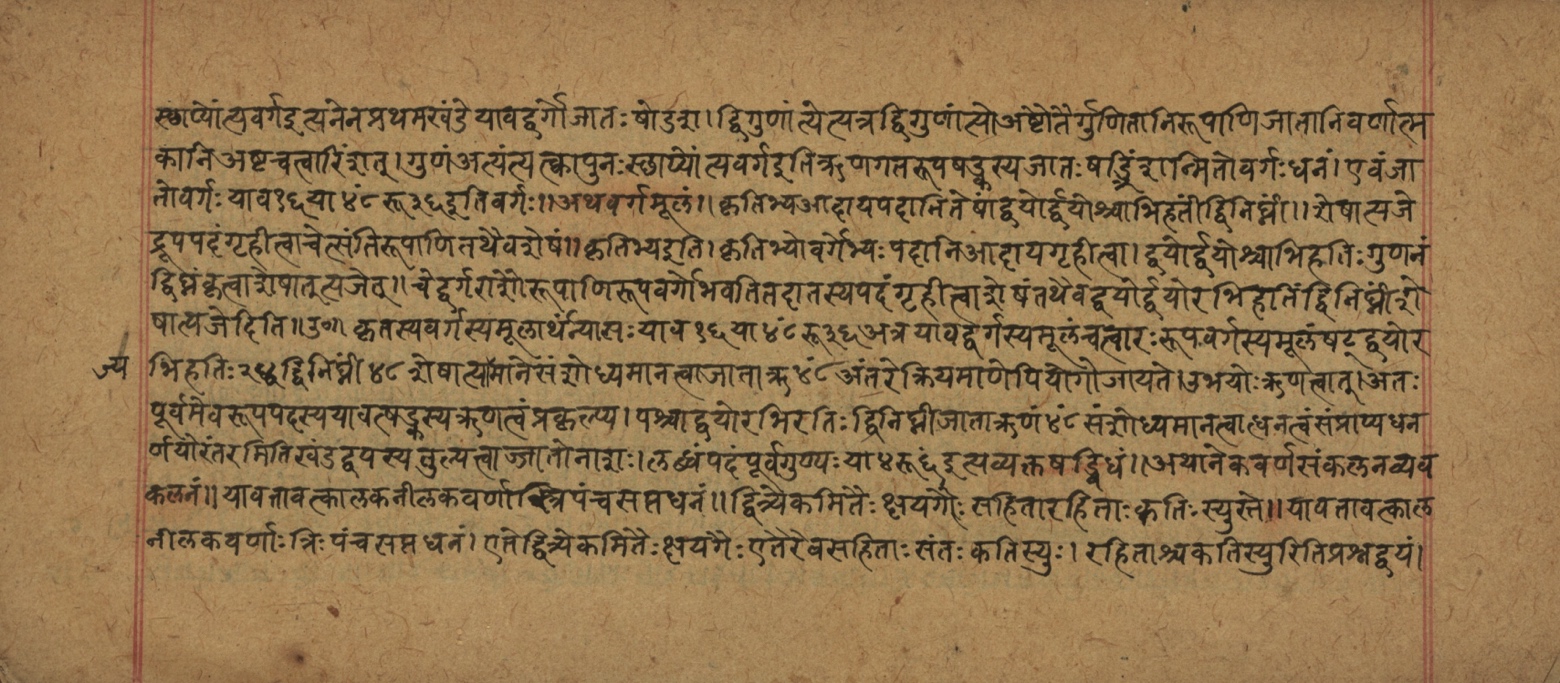 स्छाप्योंत्यवर्गइत्यनेनप्रथमखंडे यावद्वर्गौजातः षोडश। द्विगुणांत्येत्यत्रद्विगुणांत्सोअष्टोतैर्गुणितानिरूपाणिजातानिवर्णात्म
कानिअष्टचत्वारिंशत्। गुणंअत्यंत्यत्क्त्वापुनः स्छाप्योंत्यवर्गइतिऋणगतरूपषङ्कस्यजातः षड्त्रिंशन्मितोवर्गः धनं। एवंजा
तोवर्गः याव१६या ४ं८ रू३६इतिवर्गः॥अथवर्गमूलं॥ कृतिभ्यआदायपदानितेषांद्वयोर्द्वयोश्चाभिहतीद्विनिघ्नीं॥शेषात्यजे
द्रूपपदंगृहीत्वाचेत्संतिरूपाणितथैवशेषं॥ कृतिभ्यइति। कृतिभ्योवर्गेभ्यः पदानिआदायगृहीत्वा। द्वयोर्द्वयोश्चाभिहतिः गुणनं
द्विघ्नंकृत्वाशेषातुत्यजेत्॥ चेद्वर्गराशोरूपाणिरूपवर्गोभवतितदातस्यपदंगृहीत्वाशेषंतथैवद्वयोर्द्वयोरभिहतिंद्विनिघ्नींशे
षात्यजेदिति॥उ०॥ कृतस्यवर्गस्यमूलार्थंन्यासः याव १६ या ४ं८ रू३६ अत्र यावद्वर्गस्यमूलंचत्वारः रूपवर्गस्यमूलंषट् द्वयोर
भिहतिः २४ द्विनिघ्नीं ४८ शेषात्यमानेसंशोध्यमानत्वाजाताऋ ४ं८ अंतरेक्रियमाणेपियोगोजायते।उभयोःऋणत्वात्।अतः
ज्य
पूर्वमेवरूपपदस्ययावत्षङ्कस्यऋणत्वंप्रकल्प्य। पश्चाद्वयोरभिरतिः द्विनिघ्नीजाताऋणं ४ं८ संशोध्यमानत्वात्धनत्वंसंप्राप्यधन
र्णयोरंतरमितिखंडद्वयस्यतुल्यत्वाज्जातोनाशः। लब्धंपदंपूर्वगुण्यः या४रू६ं इत्यव्यक्तषड्विधं॥अथानेकवर्णसंकलनव्यव
कलनं॥ यावत्तावत्कालकनीलकवर्णास्त्रिपंचसप्तधनं॥द्वित्र्येकमितैः क्षयगैः सहितारहिताः कतिः स्युस्ते॥यावतावत्काल
नीलकवर्णाः त्रिः पंचसप्तधनं। एतेद्वित्र्येकमितैः क्षयगैः एतैरेवसहिताः संतः कतिस्युः। रहिताश्चकतिस्युरितिप्रश्नद्वयं।